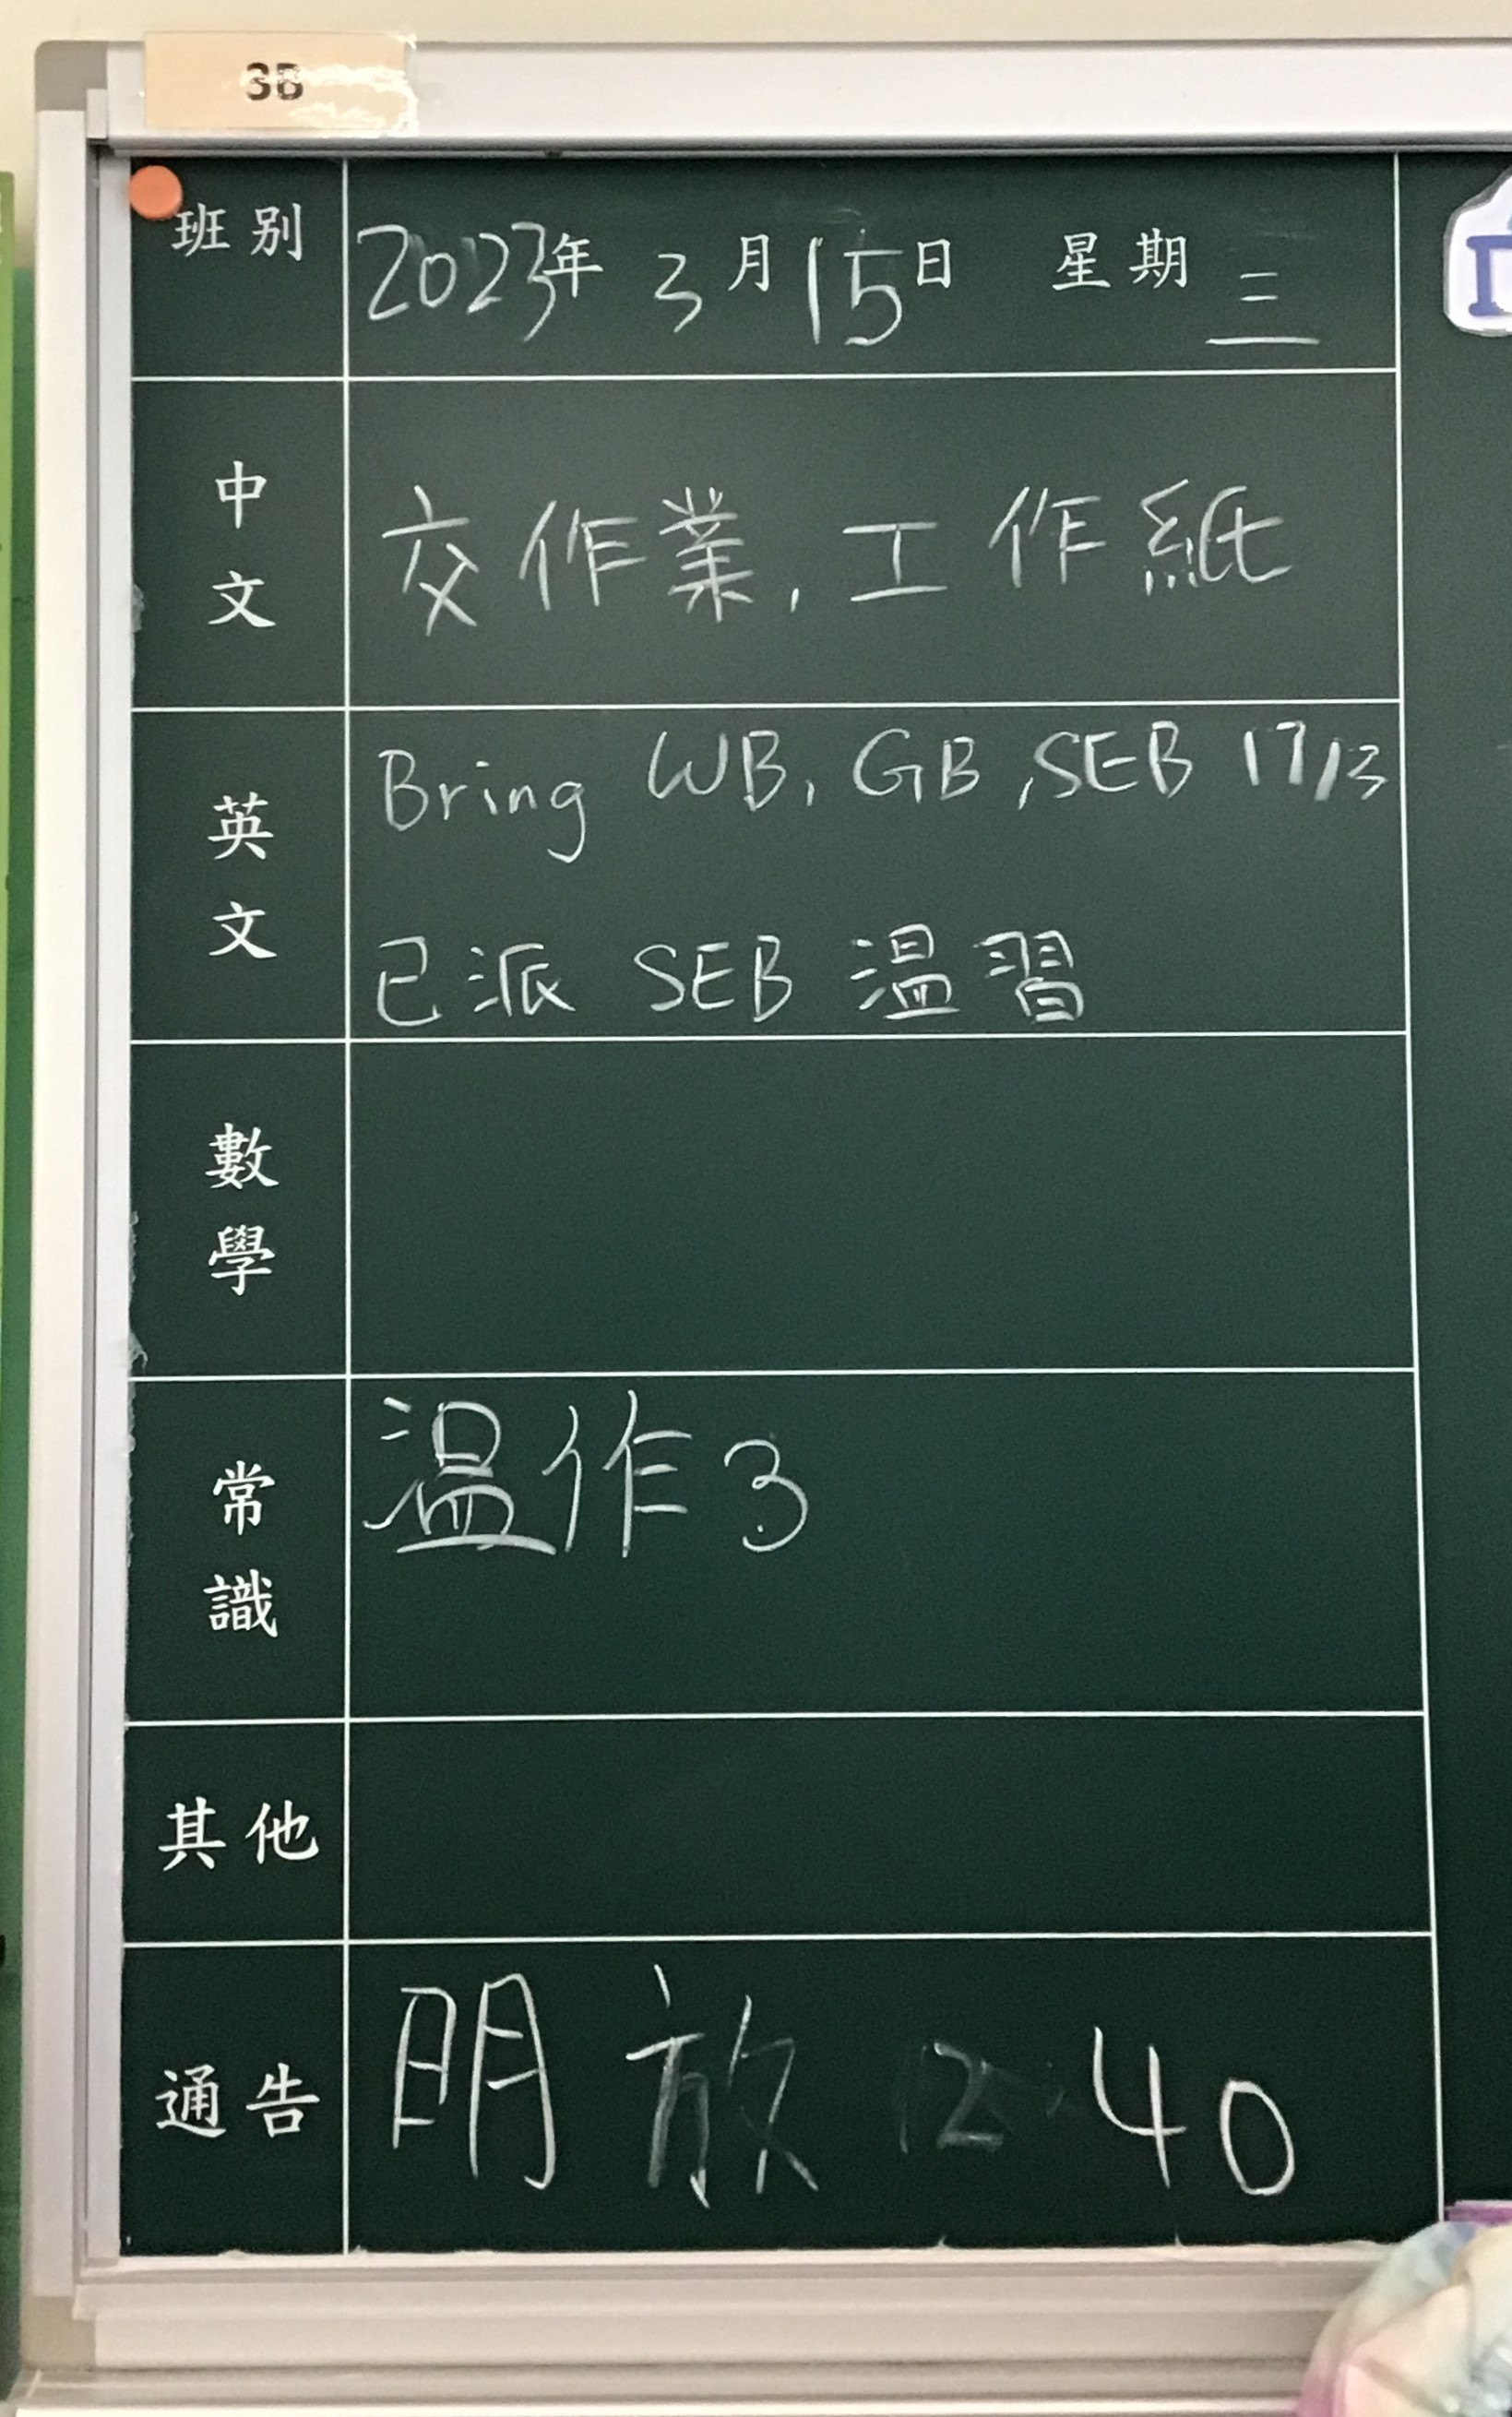 3B
班別 2023年 3月15日 星期三
中文 交作業, 工作紙
英文 Bring WB, GB, SEB 17/3
已派 SEB 溫習
數學
常識 溫作3
其他
通告 明放 12:40